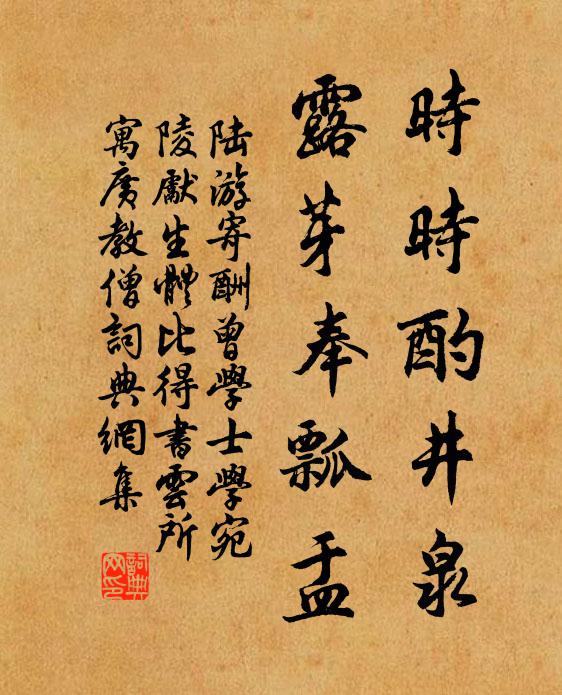 時時酌井泉
露芽奉瓢盂
陆游寄酬曾學士學宛
陵獻生體比得書雲所
寓廣教僧詞典網集
詞典網印